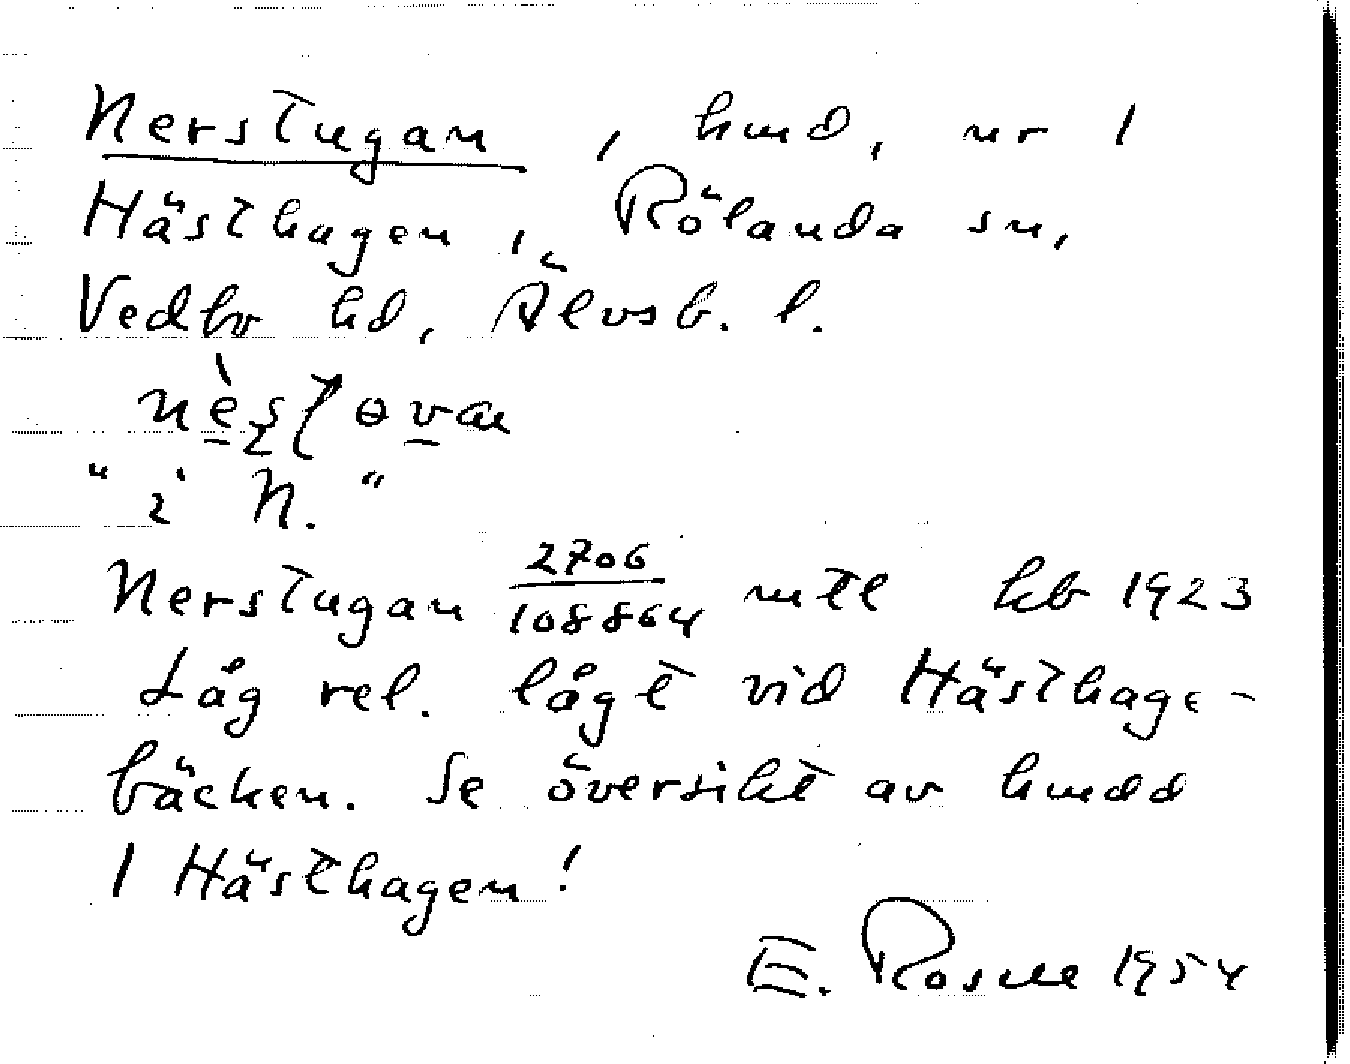 Nerstugan, hmd, nr 1
Hästhagen, Rölanda sn,
Vedbo hd, Älvsb. l.
"i N."
Nerstugan 2706/108864 mtl hb 1923
Låg rel. lågt vid Hästhage-
bäcken. Se översikt av hmdd
1 Hästhagen!
E. 1954